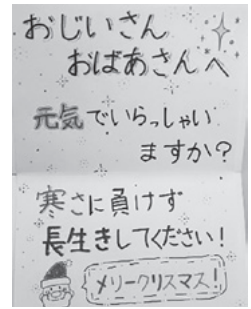 おじいさん
おばあさんへ
元気でいらっしゃい
ますか?
寒さに負けず
長生きしてください!
メリークリスマス!